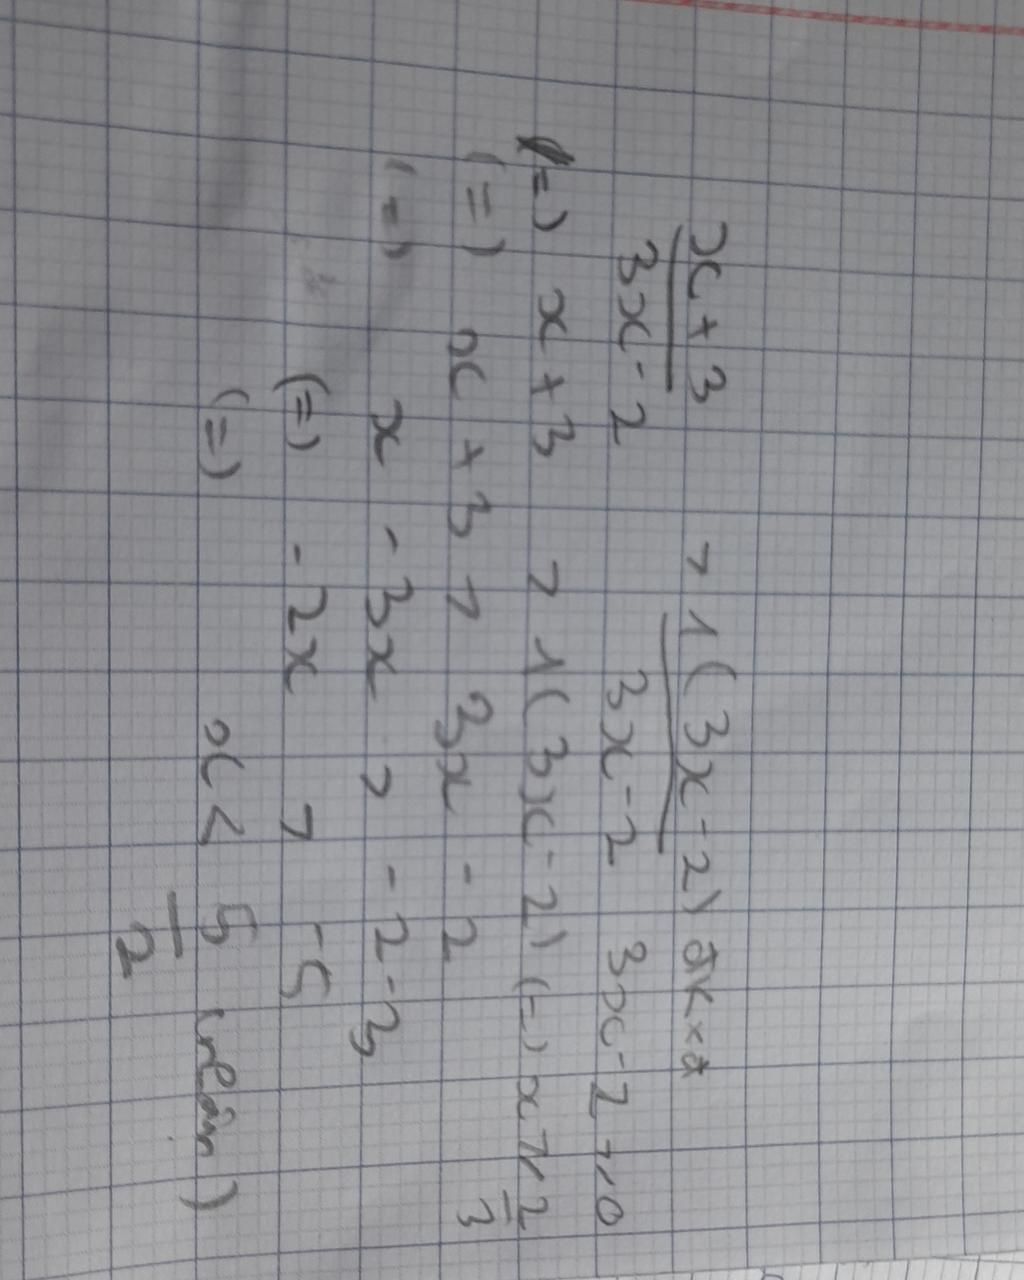 x+3 > 1(3x-2) đkxđ
3x-2 3x-2 3x-2 ≥ 0
(=) x+3 > 1(3x-2) (=) x ≥ 2/3
(=) x+3 > 3x-2
(=) x-3x > -2-3
(=) -2x > -5
(=) x < 5/2 (nhận)